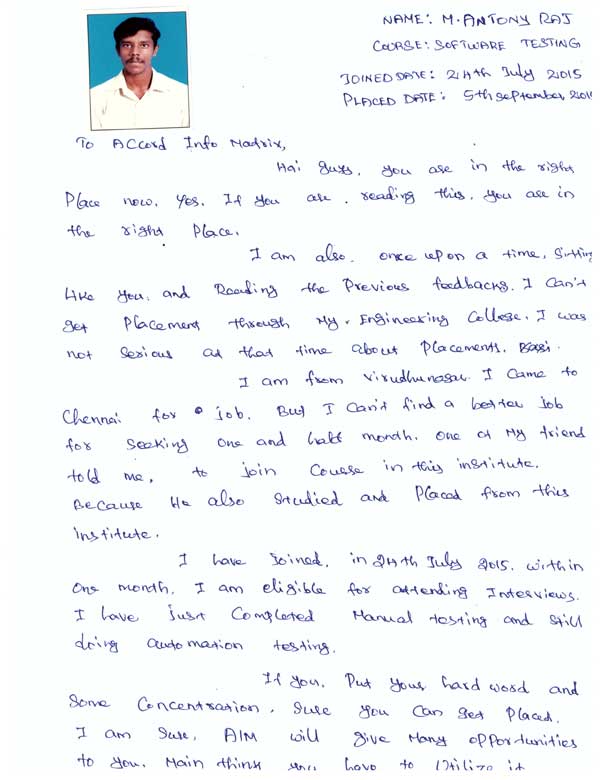 NAME: M. ANTONY RAJ
COURSE: SOFTWARE TESTING
JOINED DATE: 24th July 2015
PLACED DATE: 5th September, 201
To Accord Info Matrix,
Hai guys, you are in the right
Place now. Yes. If you are reading this, you are in
the right Place.
I am also, once upon a time, Sitting
Like you, and Reading the Previous feedbacks. I Can't
get Placement through My Engineering College. I was
not Serious at that time about Placements.
I am from Virudhunagar. I Came to
Chennai for job. But I Can't find a better job
for seeking One and half month. One of My friend
told me, to join Course in this institute.
Because He also Studied and Placed from this
institute.
I have Joined, in 24th July 2015. within
one month, I am eligible for attending Interviews.
I have just Completed Manual testing and still
doing automation testing.
If you, Put your hard word and
Some Concentration, Sure you Can get Placed.
I am Sure, AIM will give Many opportunities
to you. Main think you have to Utilize it